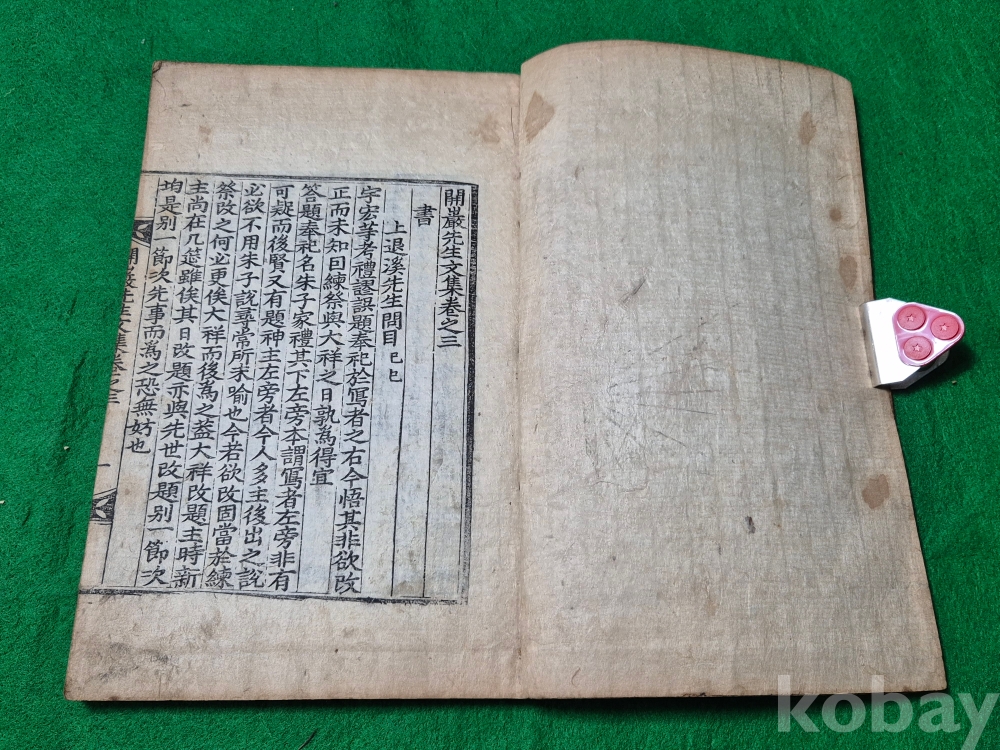 開巖先生文集卷之三
書
上退溪先生問目 己巳
宇宏等考禮謬誤題奉祀於寫者之右今悟其非欲改
正而未知回練祭與大祥之日孰為得宜
答題奉祀名朱子家禮其下左旁本謂寫者左旁非有
可疑而後賢又有題神主左旁者今人多主後出之說
必欲不用朱子說尋常所未喻也今若欲改固當於練
祭改之何必更俟大祥而後為之蓋大祥改題主時新
主尚在几筵雖俟其日改題亦與先世改題別一節次
均是別一節次先事而為之恐無妨也
開巖先生文集卷之三
一
kobay